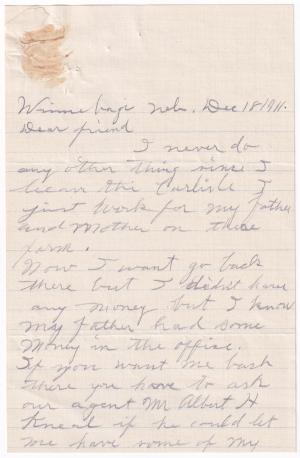 Winnebago Nebr. Dec 18 1911.
Dear friend
I never do
any other thing sinse I
lieave the Carlisle I
just work for my father
and Mother on there
farm.
Now I want go back
there but I didn't have
any money but I know
my father had some
money in the office.
If you want me back
there you have to ask
our agent Mr Albert H
Kneal if he could let
me have some of my